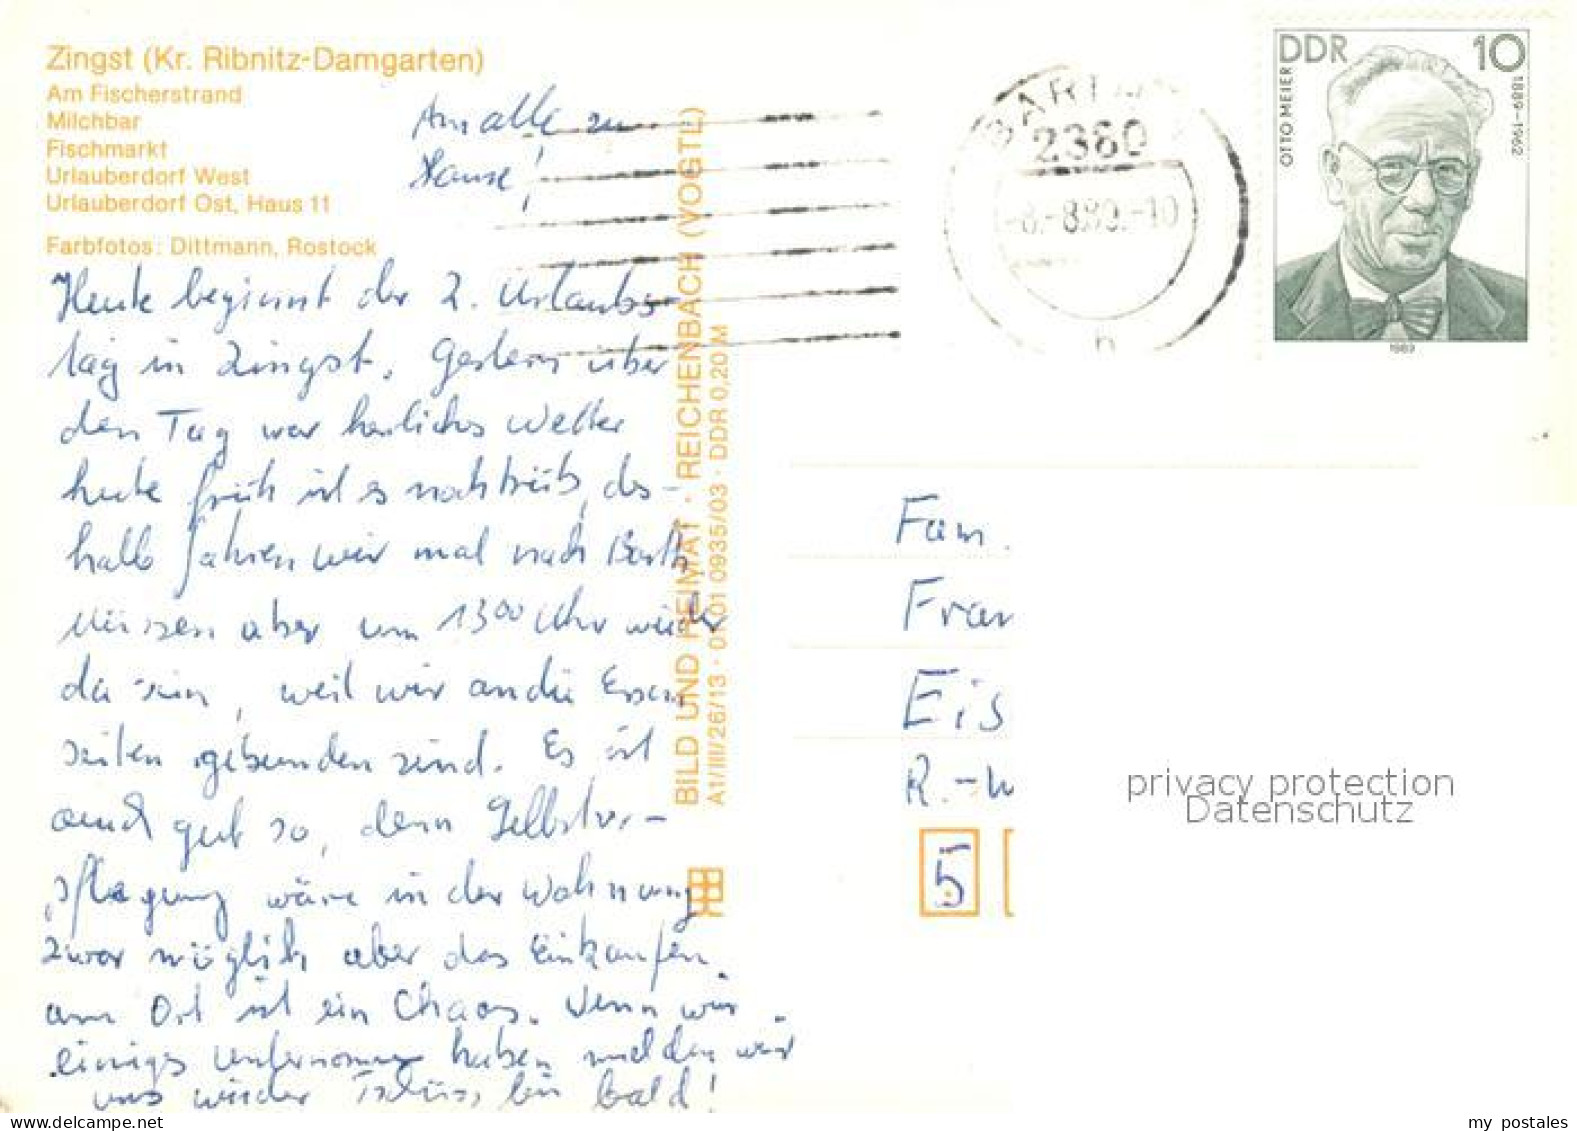 Zingst (Kr. Ribnitz-Damgarten)
Am Fischerstrand
Milchbar
Fischmarkt
Urlauberdorf West
Urlauberdorf Ost, Haus 11
Farbfotos: Dittmann, Rostock
An alle zu
Hause!
Heute beginnt der 2. Urlaubs-
tag in Zingst. Gestern über
den Tag war herrliches Wetter
heute früh ist es noch trüb, des-
halb fahren wir mal nach Barth,
müssen aber um 13⁰⁰ Uhr wieder
da sein, weil wir an die Essen
zeiten gebunden sind. Es ist
auch gut so, denn Selbstver-
pflegung wäre in der Wohnung
zwar möglich aber das Einkaufen
am Ort ist ein Chaos. Wenn wir
einiges unternommen haben melden wir
uns wieder Tschüss bis bald!
BILD UND HEIMAT · REICHENBACH (VOGTL)
A1/III/26/13 · 01 01 0935/03 · DDR 0,20 M
BARTH
2380
-8.-8.89.-10
h
DDR 10
OTTO MEIER
1889-1962
1989
Fam.
Fran
Eis
R.-W
5
privacy protection
Datenschutz
my postales